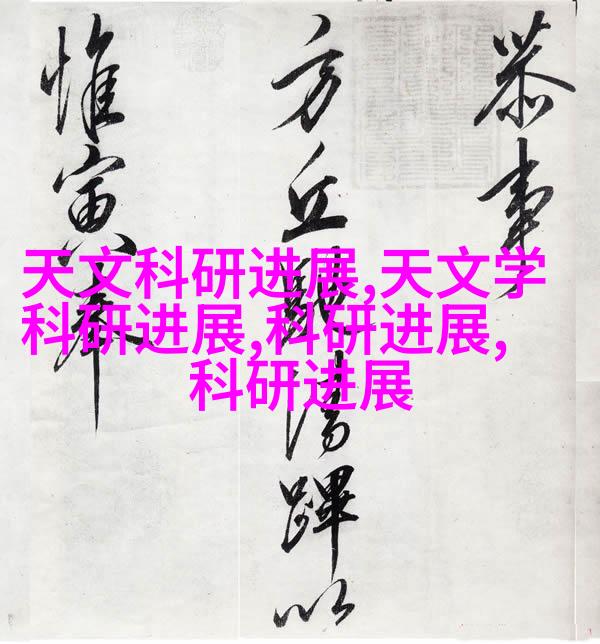 恭事
方丘清蹕以
惟寅奉
天文科研进展,天文学
科研进展,科研进展,
科研进展